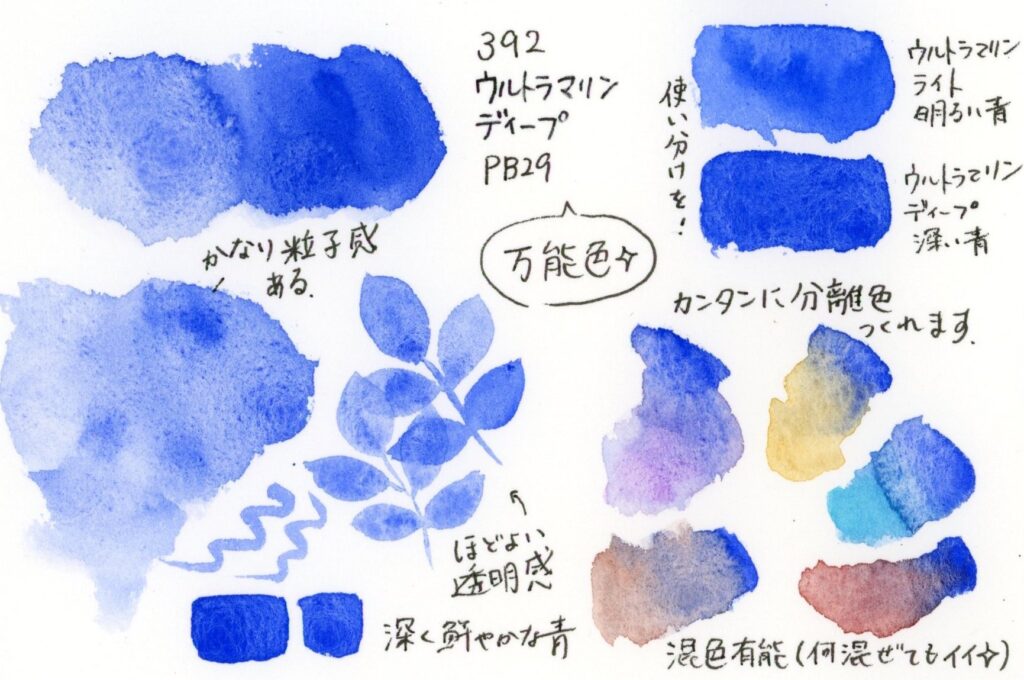 392
ウルトラマリン
ディープ
PB29
万能色✧
かなり粒子感
ある.
使い分けを!
ウルトラマリン
ライト
明るい青
ウルトラマリン
ディープ
深い青
カンタンに分離色
つくれます.
ほどよい
透明感
深く鮮やかな青
混色有能(何混ぜてもイイ✧)